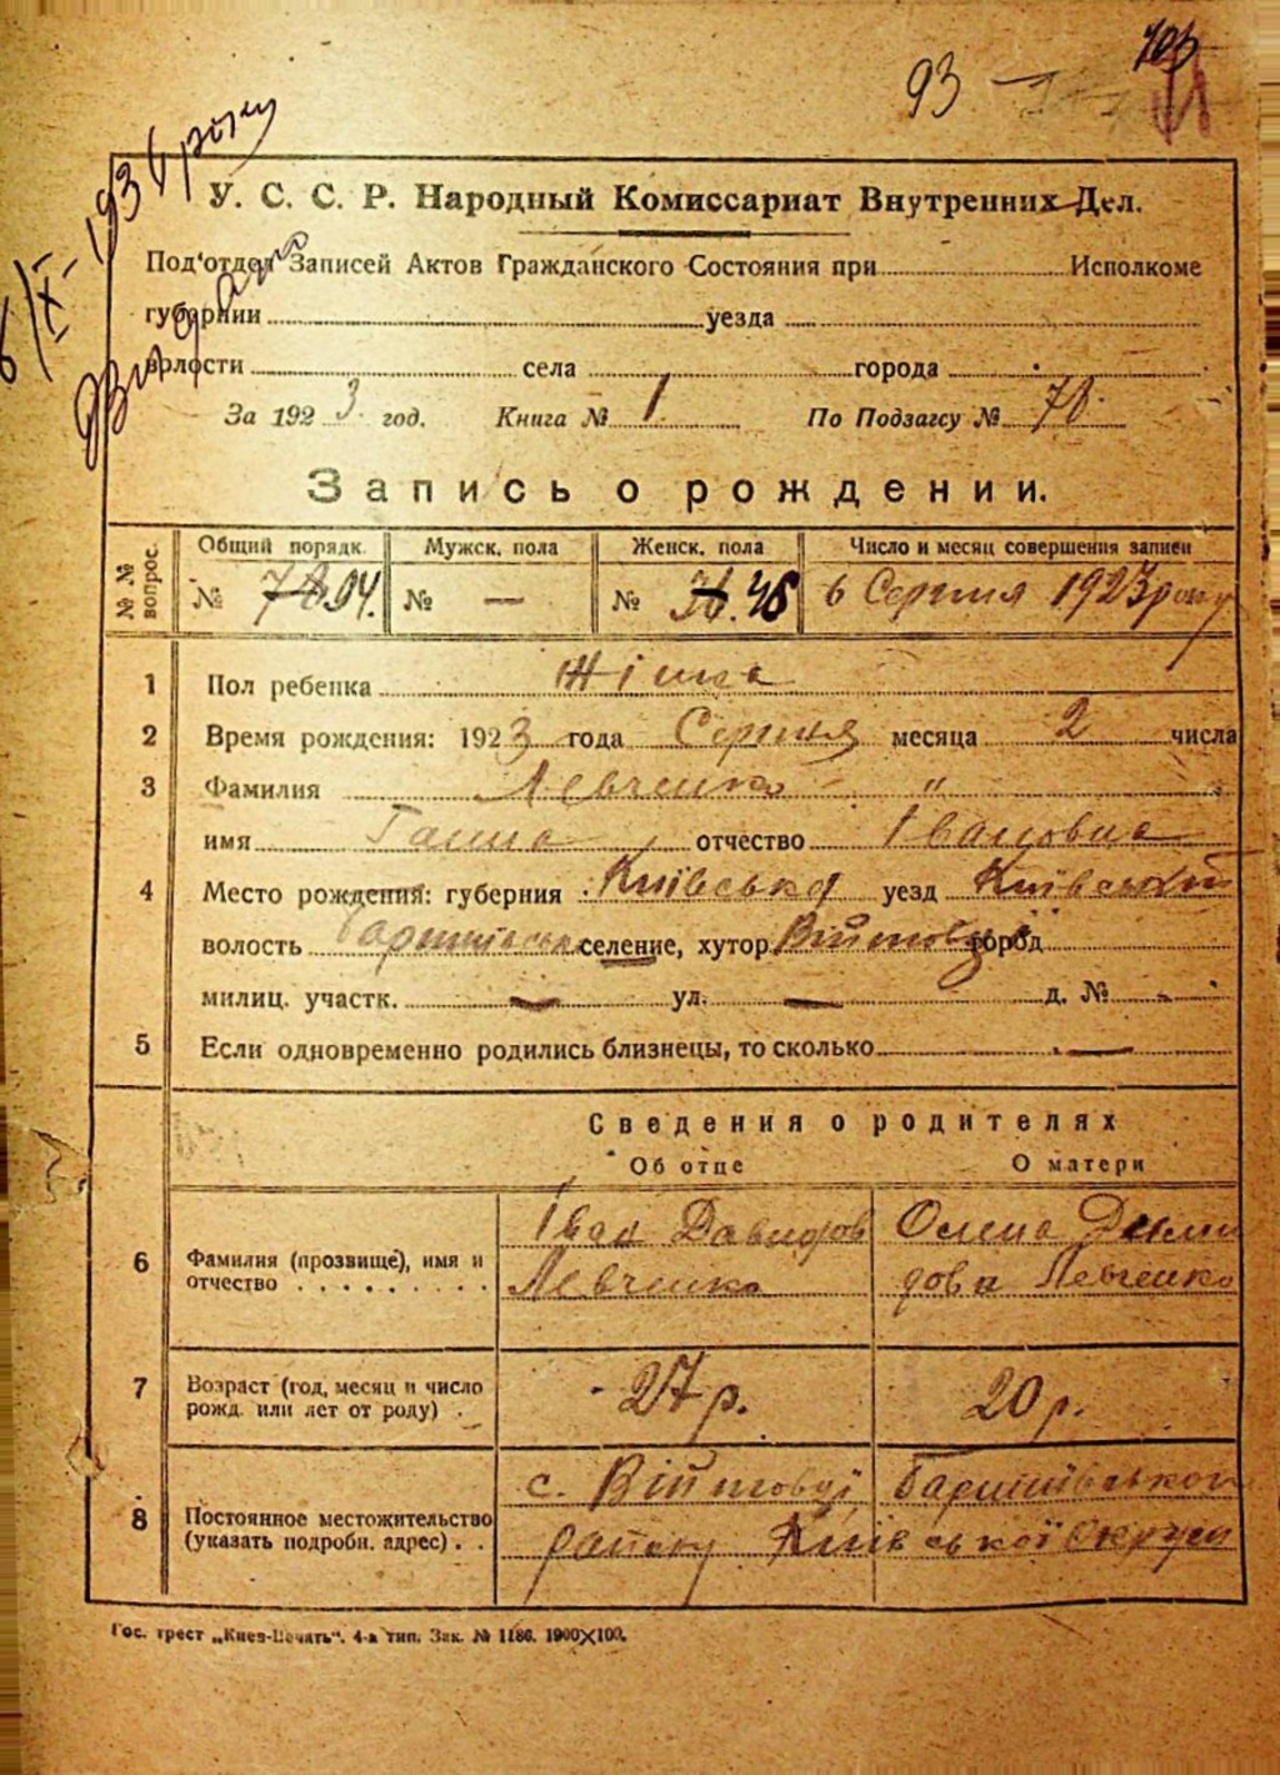 93 —
6/IX-1936 року
У. С. С. Р. Народный Комиссариат Внутренних Дел.
Под'отдел Записей Актов Гражданского Состояния при Исполкоме
губернии уезда
волости села города
За 1923 год. Книга № 1 По Подзагсу № 78.
Запись о рождении.
№ № вопрос.
Общий порядк. Мужск. пола Женск. пола Число и месяц совершения записи
№ 78 94. № — № 36. 48 6 Серпня 1923 року
1 Пол ребенка Жіноча
2 Время рождения: 1923 года Серпня месяца 2 числа
3 Фамилия Левченко "
имя Ганна отчество Івановна
4 Место рождения: губерния Київська уезд Київський
волость Баришівська селение, хутор Війтовці город
милиц. участк. — ул. — д. № -
5 Если одновременно родились близнецы, то сколько —
Сведения о родителях
Об отце О матери
6 Фамилия (прозвище), имя и отчество . . . . . . . . .
Іван Давидов
Левченко
Олена Деми
дова Левченко
7 Возраст (год, месяц и число рожд. или лет от роду) .
27 р. 20 р.
8 Постоянное местожительство (указать подробн. адрес) . .
с. Війтовці Баришівського
району Київської округи
Гос. трест „Киев-Печать". 4-я тип. Зак. № 1186. 1900X100.